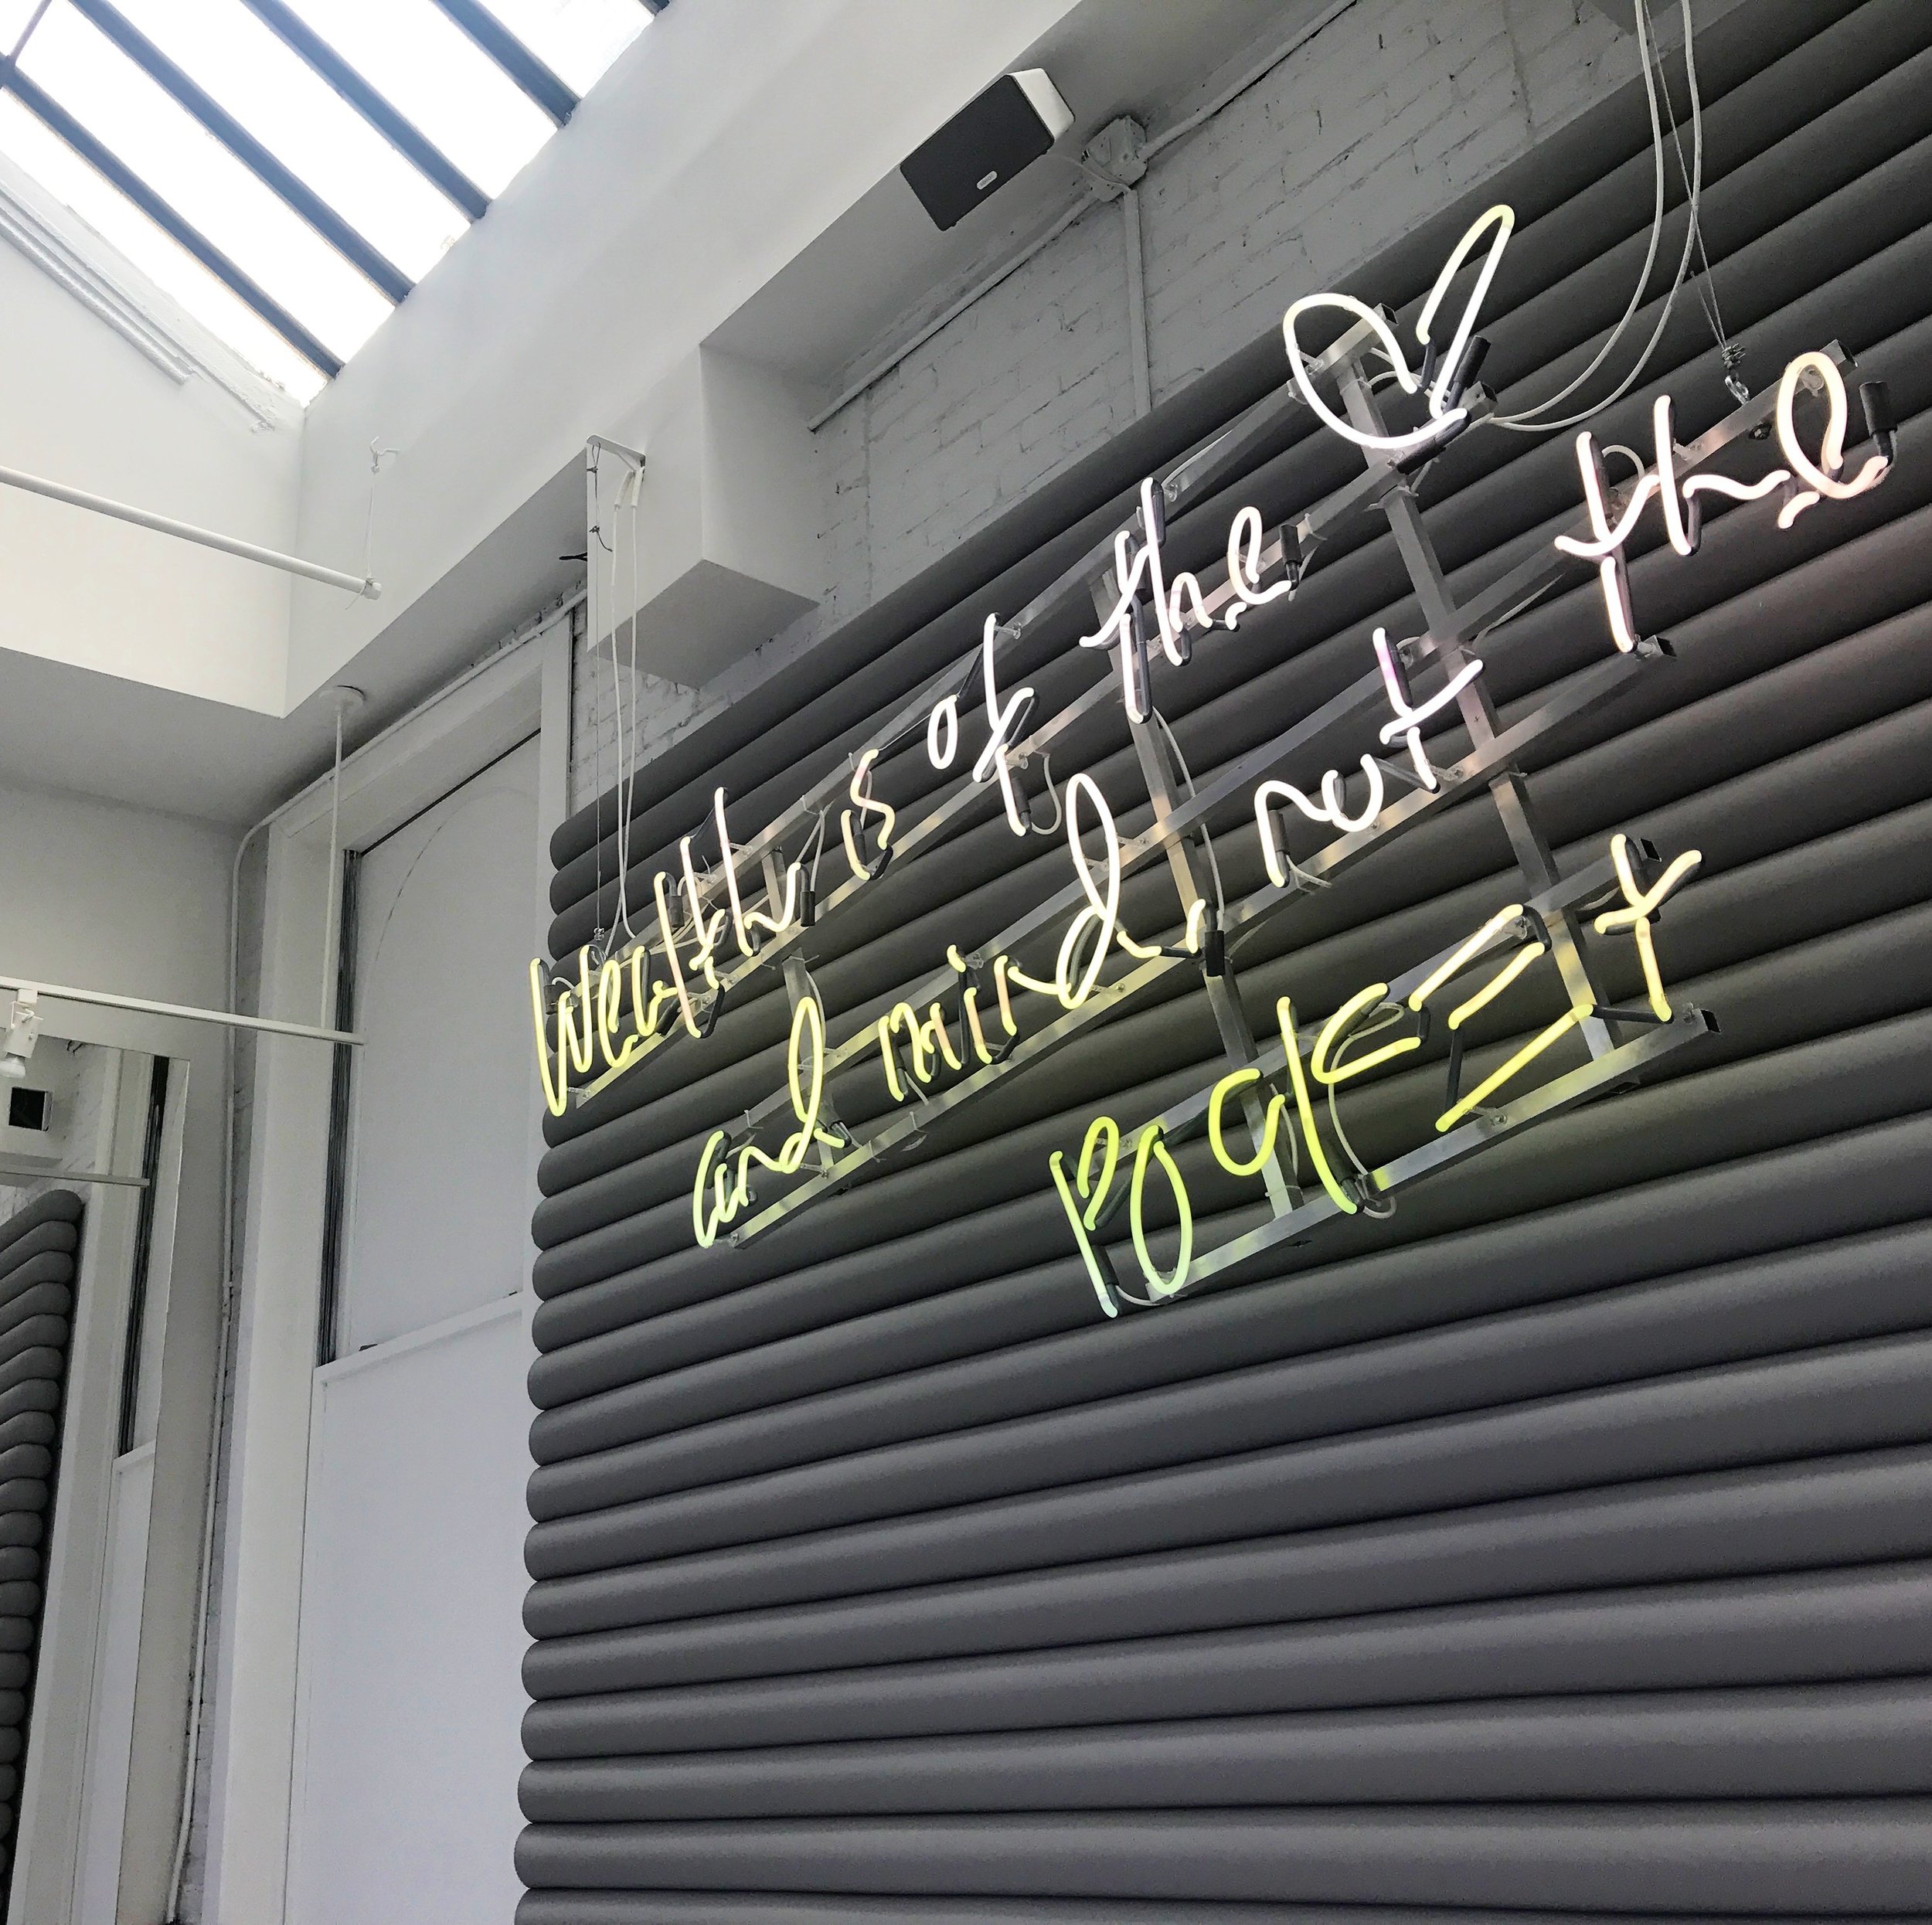 wealth is of the ♡
and mind, not the
pocket